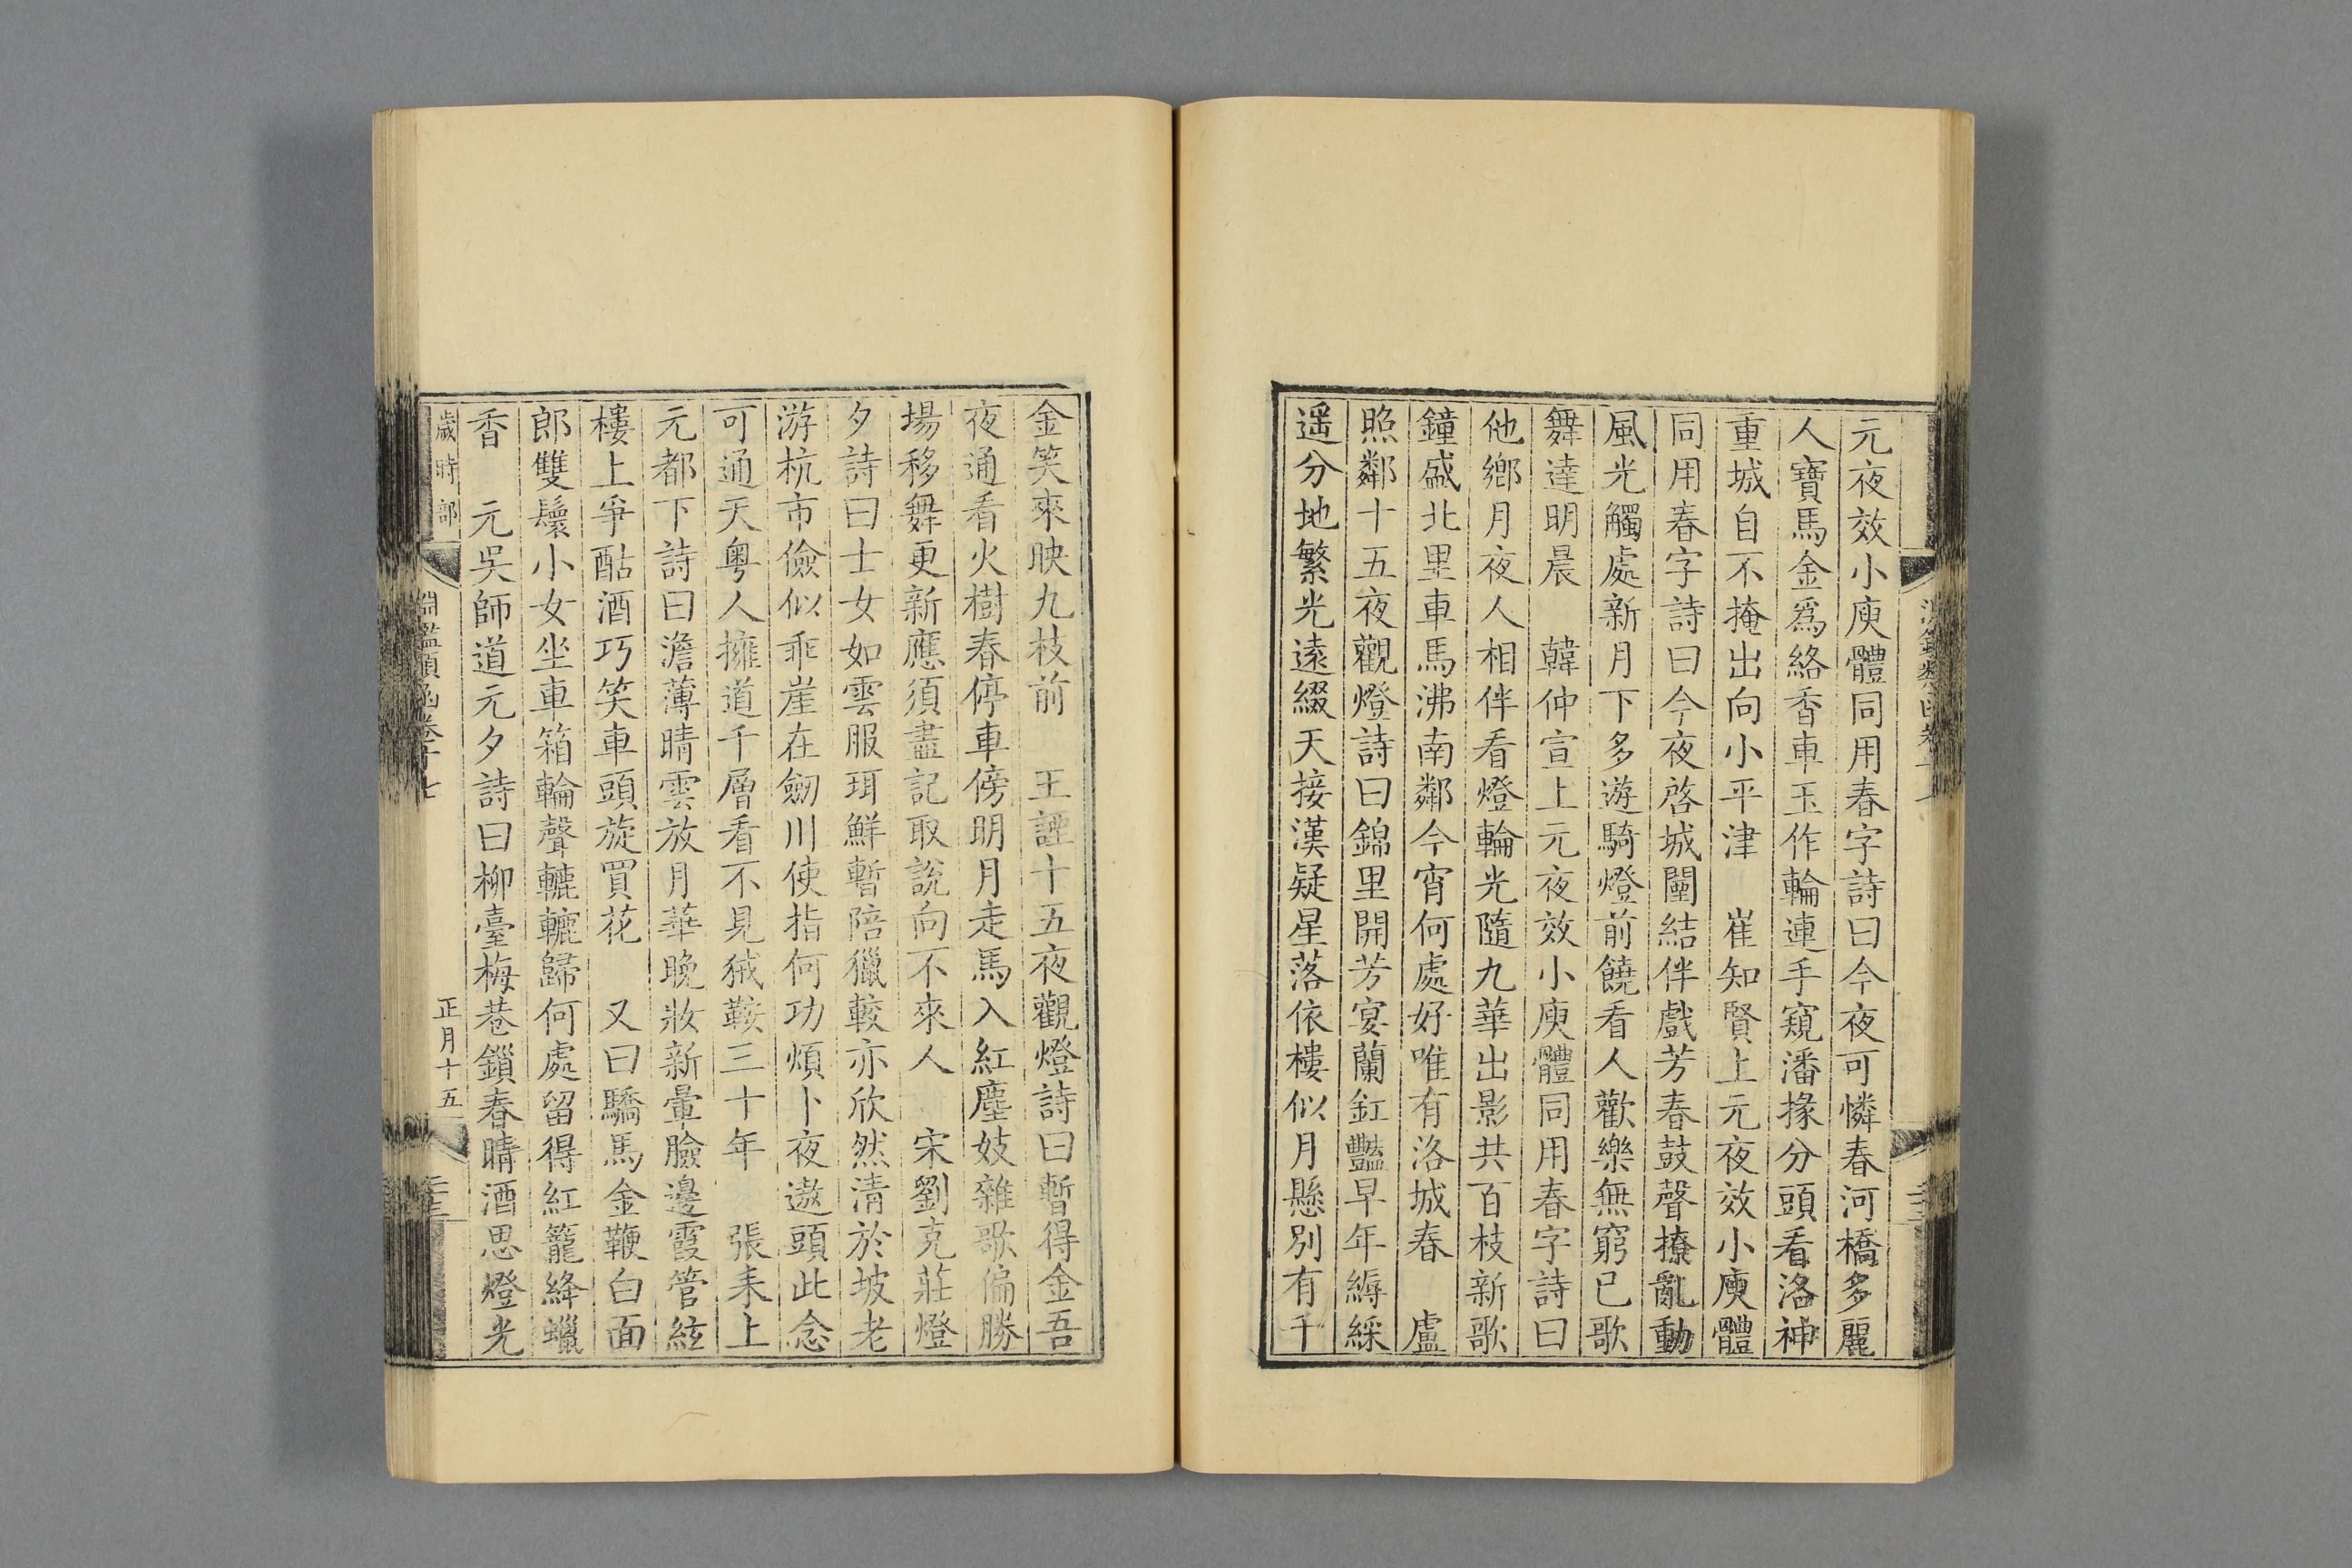 元夜效小庾體同用春字詩曰今夜可憐春河橋多麗
人寶馬金爲絡香車玉作輪連手窺潘掾分頭看洛神
重城自不掩出向小平津　崔知賢上元夜效小庾體
同用春字詩曰今夜啓城闉結伴戲芳春鼓聲撩亂動
風光觸處新月下多遊騎燈前饒看人歡樂無窮已歌
舞達明晨　韓仲宣上元夜效小庾體同用春字詩曰
他鄉月夜人相伴看燈輪光隨九華出影共百枝新歌
鐘盛北里車馬沸南鄰今宵何處好唯有洛城春　盧
照鄰十五夜觀燈詩曰錦里開芳宴蘭釭豔早年縟綵
遥分地繁光遠綴天接漢疑星落依樓似月懸別有千
金笑來映九枝前　王諲十五夜觀燈詩曰暫得金吾
夜通看火樹春停車傍明月走馬入紅塵妓雜歌偏勝
場移舞更新應須盡記取說向不來人　宋劉克莊燈
夕詩曰士女如雲服珥鮮暫陪獵較亦欣然清於坡老
游杭市儉似乖崖在劒川使指何功煩卜夜遨頭此念
可通天粤人擁道千層看不見狨鞍三十年　張耒上
元都下詩曰澹薄晴雲放月華晚妝新暈臉邊霞管絃
樓上爭酤酒巧笑車頭旋買花　又曰驕馬金鞭白面
郎雙鬟小女坐車箱輪聲轆轆歸何處留得紅籠絳蠟
香　元吳師道元夕詩曰柳臺梅巷鎖春晴酒思燈光
歲時部　淵鑑類函卷十七　正月十五